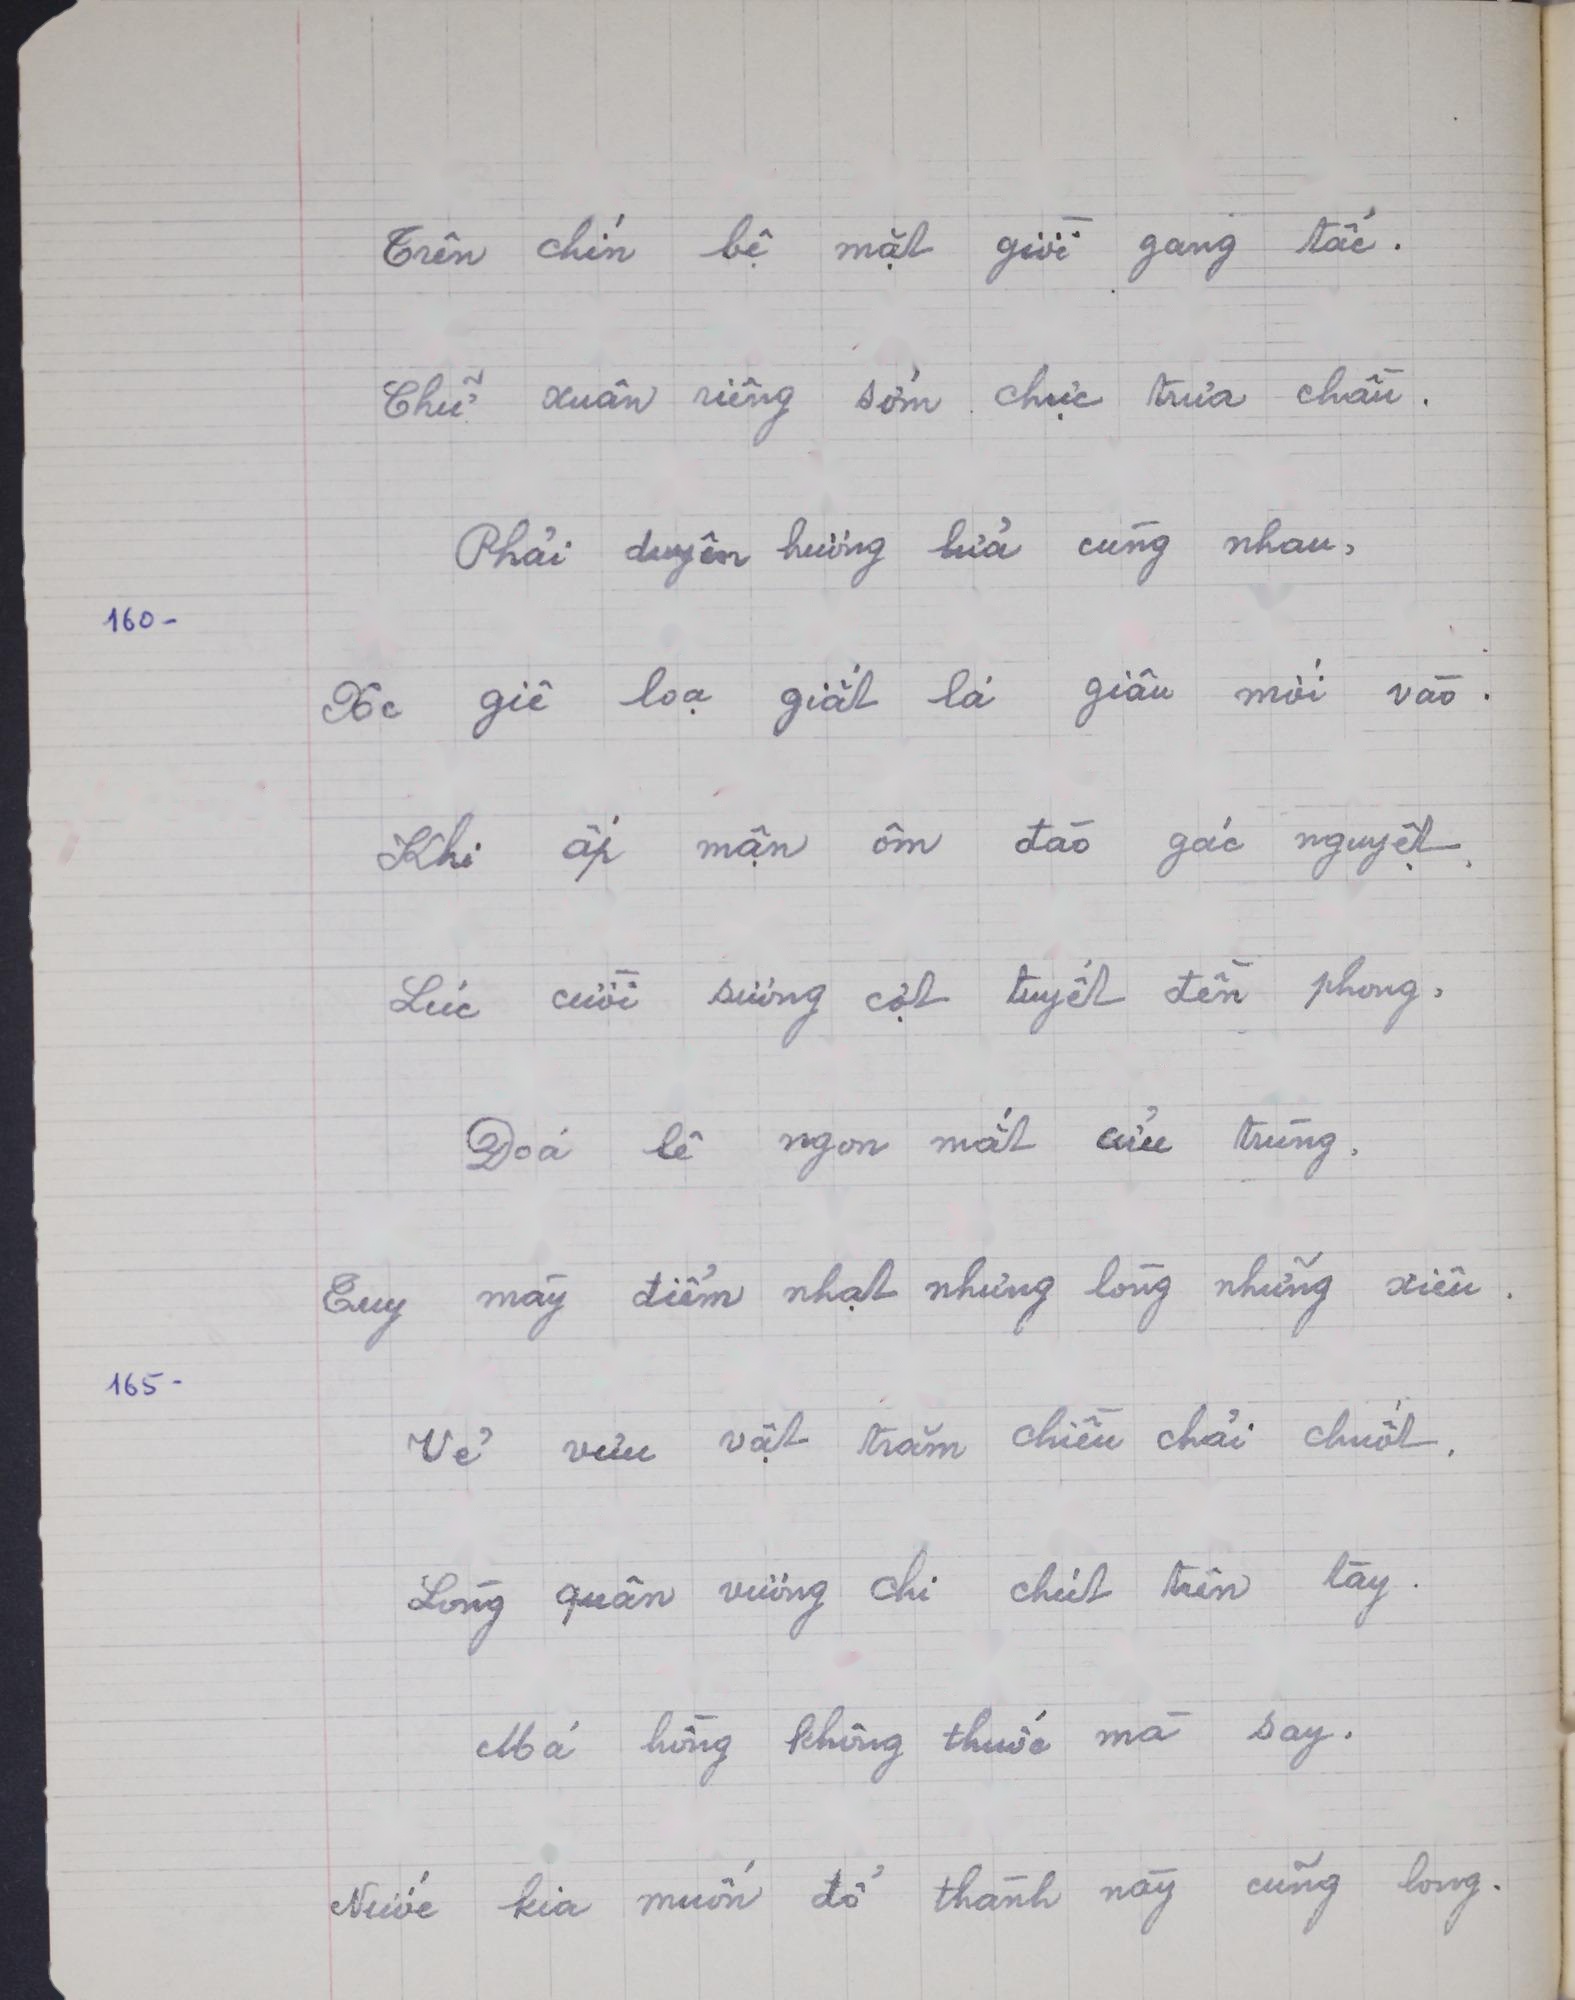 Trên chín bệ mặt giời gang tấc.
Chữ xuân riêng sớm chực trưa chầu.
Phải duyên hương lửa cùng nhau,
160-
Xe giê lọa giắt lá giâu mời vào.
Khi ấp mận ôm đào gác nguyệt,
Lúc cười sương cợt tuyết đền phong,
Đoá lê ngon mắt cửu trùng,
Tuy mày điểm nhạt nhưng lòng những xiêu.
165-
Vẻ vưu vật trăm chiều chải chuốt,
Lòng quân vương chi chút trên tày.
Má hồng không thuốc mà say.
Nước kia muốn đổ thành này cũng long.